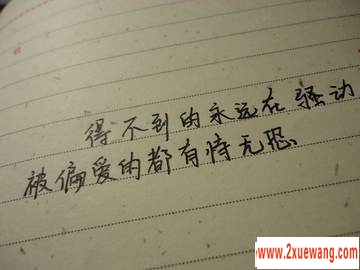 得不到的永远在骚动
被偏爱的都有恃无恐
www.2xuewang.com